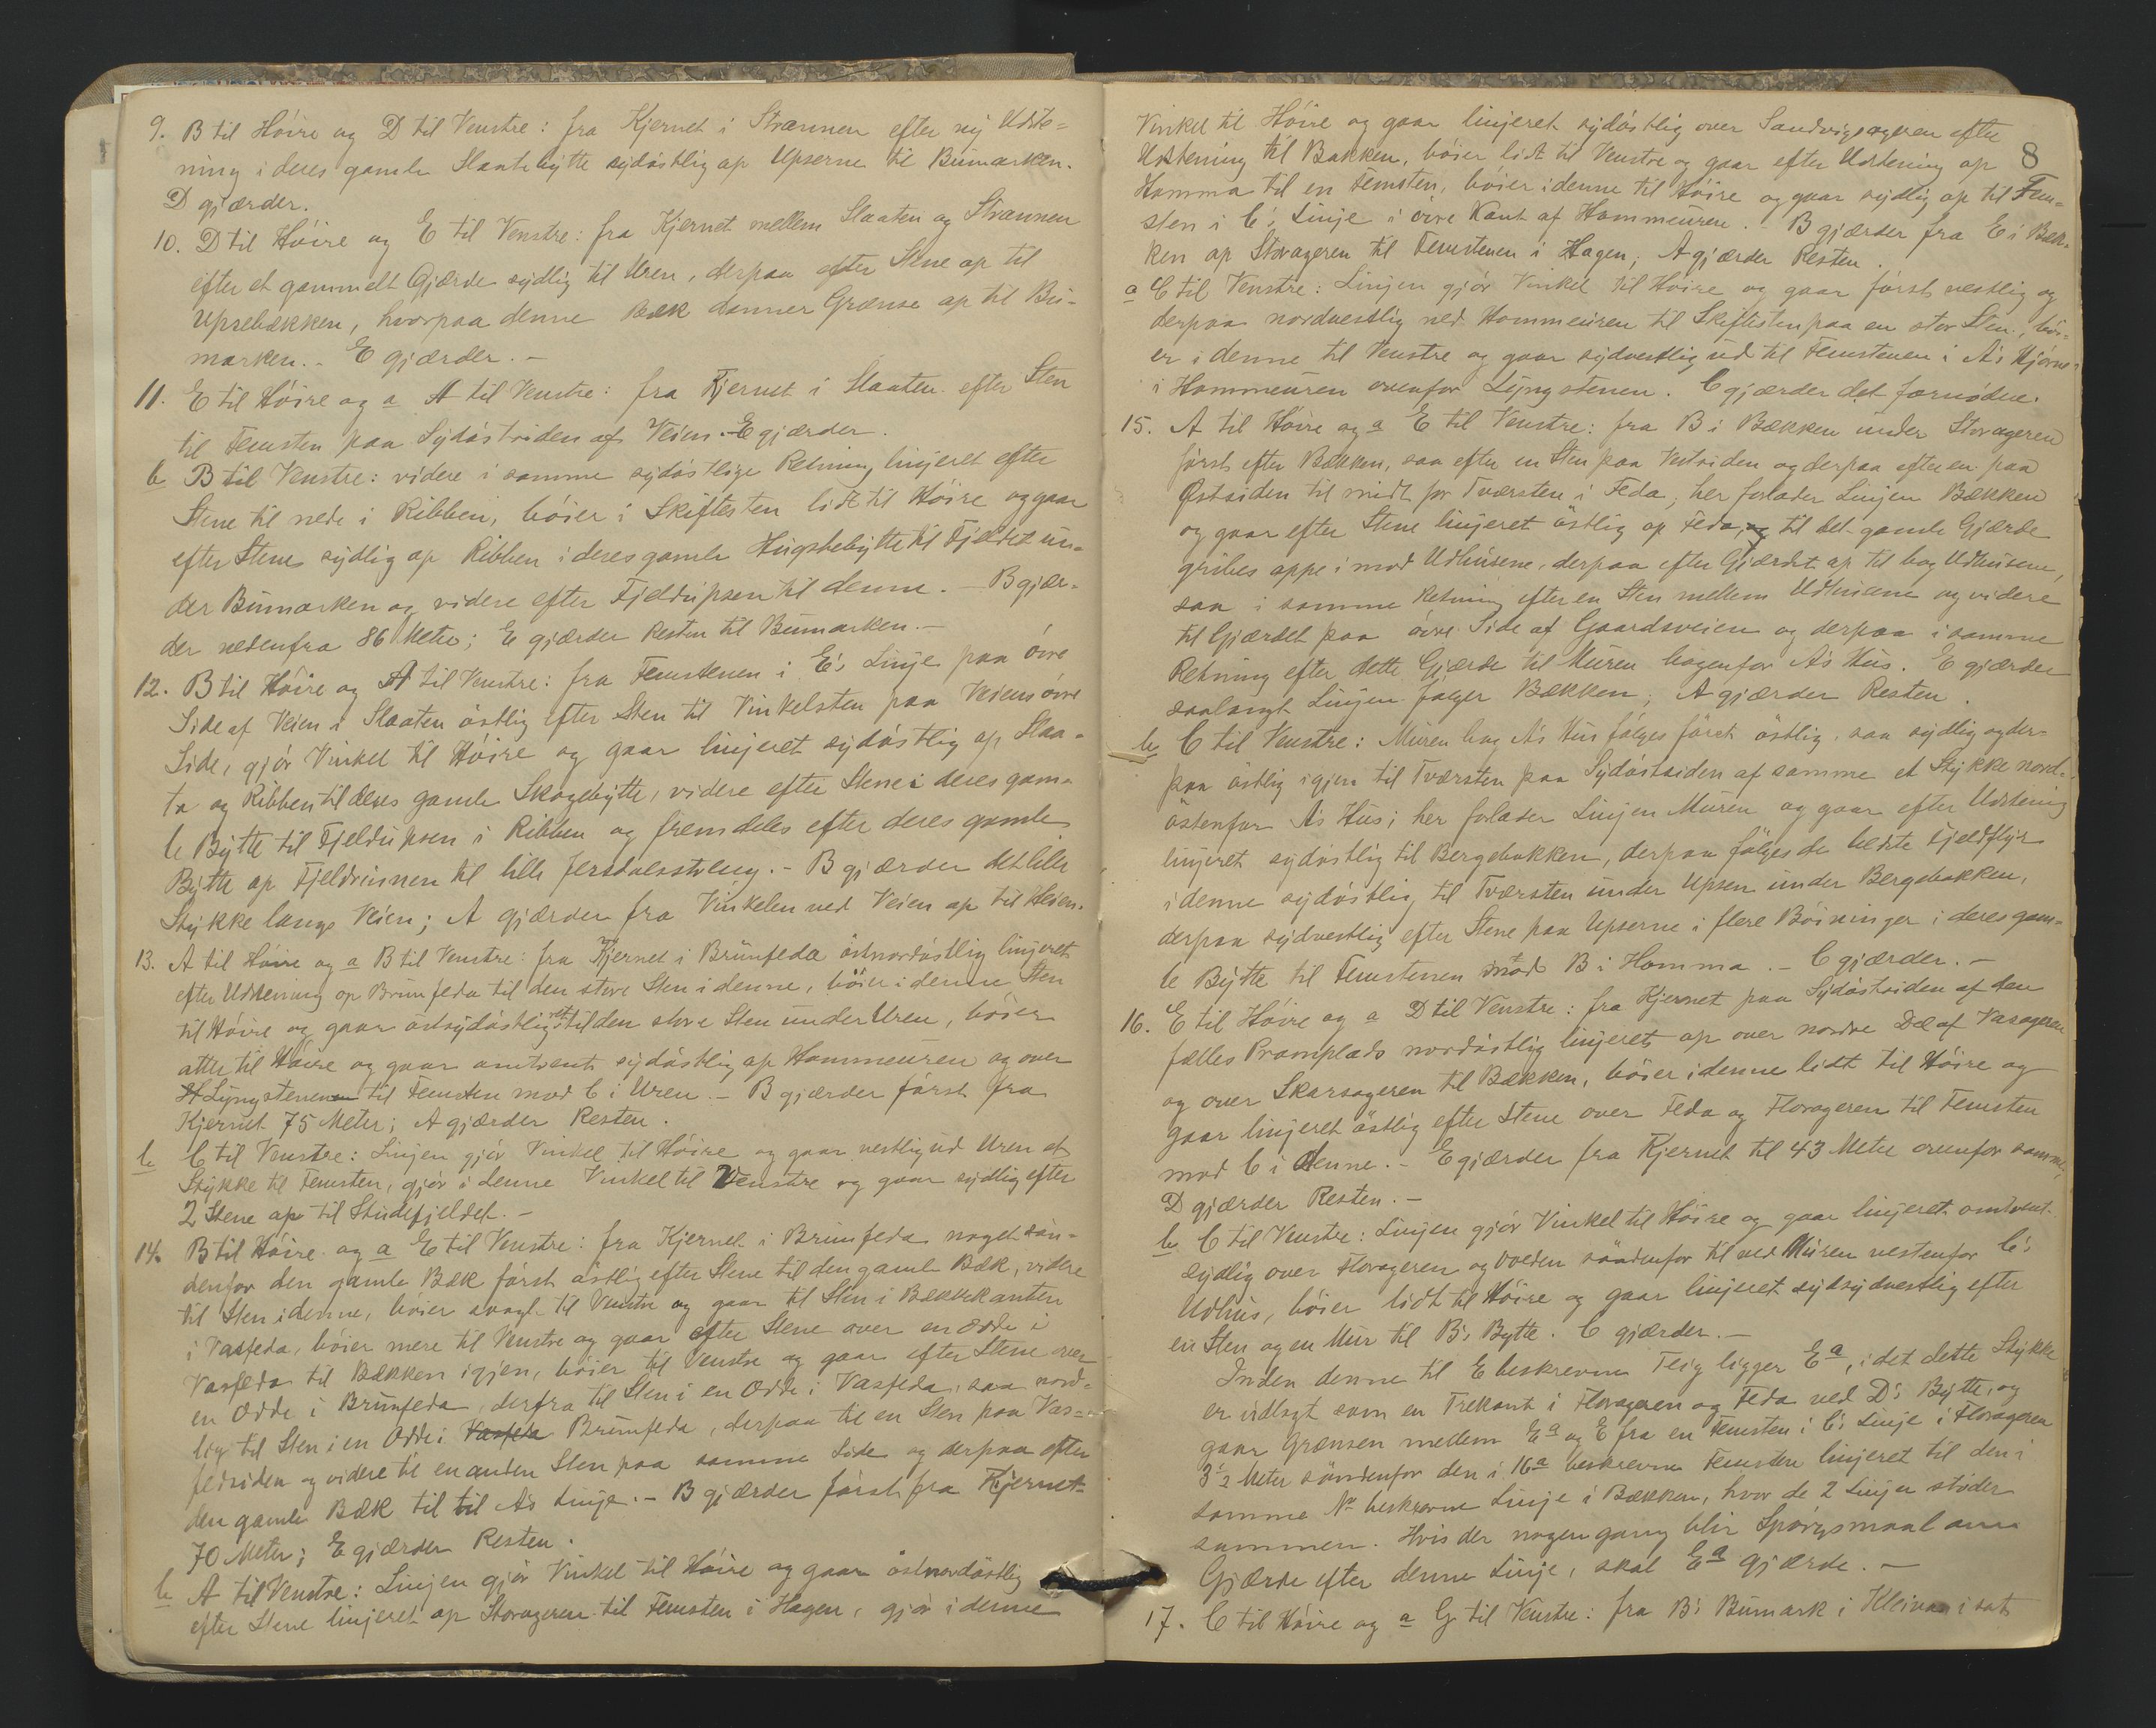 9. B til Höire og D til Venstre: fra Kjernet i Strannen efter ny Udste-
ning i deres gamle Slaattebytte sydöstlig op Upserne til Bumarken.
D gjærder.
10. D til Höire og E til Venstre: fra Kjernet mellem Slaaten og Strannen
efter et gammelt Gjærde sydlig til Uren, derpaa efter Stene op til
Upsebækken, hvorpaa denne Bæk danner Grænse op til Bu-
marken. - E gjærder. -
11. E til Höire og a A til Venstre: fra Kjernet i Slaaten efter Sten
til Femsten paa Sydöstsiden af Veien. - E gjærder.
b B til Venstre: videre i samme sydöstlige Retning linjeret efter
Stene til nede i Ribben, böier i Skiftesten lidt til Höire og gaar
efter Stene sydlig op Ribben i deres gamle Hugstebytte til Fjeldet un-
der Bumarken og videre efter Fjeldupsen til denne. - B gjær-
der nedenfra 86 Meter; E gjærder Resten til Bumarken. -
12. B til Höire og A til Venstre: fra Femstenen i E's Linje paa övre
Side af Veien i Slaaten östlig efter Sten til Vinkelsten paa Veiens övre
Side, gjör Vinkel til Höire og gaar linjeret sydöstlig op Slaa-
ta og Ribben til deres gamle Skogebytte, videre efter Stene i deres gam-
le Bytte til Fjeldupsen i Ribben og fremdeles efter deres gamle
Bytte op Fjeldrusnen til lille Jersdalsstreng. - B gjærder det lille
Stykke langs Veien; A gjærder fra Vinkelen ved Veien op til Heien.
13. A til Höire og a B til Venstre: fra Kjernet i Brunfeda östnordöstlig linjeret
efter Udstening op Brunfeda til den store Sten i denne, böier i denne Sten
til Höire og gaar östsydöstlig ret til den store Sten under Uren, böier
atter til Höire og gaar omtrent sydöstlig op Hommeuren og over
Lyngstenen til Femsten mod C i Uren. - B gjærder först fra
Kjernet 75 Meter; A gjærder Resten.
b C til Venstre: Linjen gjör Vinkel til Höire og gaar vestlig ud Uren et
Stykke til Femsten, gjör i denne Vinkel til Venstre og gaar sydlig efter
2 Stene op til Studefjeldet. -
14. B til Höire og a E til Venstre: fra Kjernet i Brunfeda noget sön-
denfor den gamle Bæk först östlig efter Stene til den gamle Bæk, videre
til Sten i denne, böier svagt til Venstre og gaar til Sten i Bækkekanten
i Vasfeda, böier mere til Venstre og gaar efter Stene over en Odde i
Vasfeda til Bækken igjen, böier til Venstre og gaar efter Stene over
en Odde i Brunfeda, derfra til Sten i en Odde i Vasfeda, saa nord-
lig til Sten i en Odde i Vasfeda Brunfeda, derpaa til en Sten paa Vas-
fedsiden og videre til en anden Sten paa samme Side og derpaa efter
den gamle Bæk til til A's Linje. - B gjærder först fra Kjernet
70 Meter; E gjærder Resten.
b A til Venstre: Linjen gjör Vinkel til Höire og gaar östnordöstlig
efter Stene linjeret op Storageren til Femsten i Hagen, gjör i denne
8
Vinkel til Höire og gaar linjeret sydöstlig over Sandvigsageren efter
Udstening til Bakken, böier lidt til Venstre og gaar efter Udstening op
Homma til en Femsten, böier i denne til Höire og gaar sydlig op til Fem-
sten i C's Linje i övre Kant af Hommeuren. - B gjærder fra E i Bæk-
ken op Storageren til Femstenen i Hagen; A gjærder Resten.
a C til Venstre: Linjen gjör Vinkel til Höire og gaar först vestlig og
derpaa nordvestlig ned Hommeuren til Skiftesten paa en stor Sten, böi-
er i denne til Venstre og gaar sydvestlig ud til Femstenen i A's Hjörne
i Hommeuren ovenfor Lyngstenen. C gjærder det fornødne.
15. A til Höire og a E til Venstre: fra B i Bækken under Storageren
först efter Bækken, saa efter en Sten paa Vestsiden og derpaa efter en paa
Østsiden til midt for Tværsten i Feda; her forlader Linjen Bækken
og gaar efter Stene linjeret östlig op Feda, og til det gamle Gjærde
gribes oppe imod Udhusene, derpaa efter Gjærdet op til bag Udhusene,
saa i samme Retning efter en Sten mellem Udhusene og videre
til Gjærdet paa övre Side af Gaardsveien og derpaa i samme
Retning efter dette Gjærde til Muren bagenfor A's Hus. E gjærder
saalangt Linjen følger Bækken; A gjærder Resten.
b C til Venstre: Muren bag A's Hus følges först östlig, saa sydlig og der-
paa östlig igjen til Tværsten paa Sydöstsiden af samme et Stykke nord-
östenfor A's Hus; her forlader Linjen Muren og gaar efter Udstening
linjeret sydöstlig til Bergebakken, derpaa følges de bedste Fjeldflyr
i denne sydöstlig til Tværsten under Upsen under Bergebakken,
derpaa sydvestlig efter Stene paa Upserne i flere Böininger i deres gam-
le Bytte til Femstenen mod B i Homma. - C gjærder. -
16. E til Höire og a D til Venstre: fra Kjernet paa Sydöstsiden af den
fælles Pramplads nordöstlig linjeret op over nordre Del af Vasageren
og over Skarsageren til Bækken, böier i denne lidt til Höire og
gaar linjeret östlig efter Stene over Feda og Florageren til Femsten
mod C i denne. - E gjærder fra Kjernet til 43 Meter ovenfor samme;
D gjærder Resten. -
b C til Venstre: Linjen gjör Vinkel til Höire og gaar linjeret omtrent
sydlig over Florageren og söndenfor til ved Muren vestenfor C's
Udhus, böier lidt til Höire og gaar linjeret sydsydvestlig efter
en Sten og en Mur til B's Bytte. C gjærder. -
Inden denne til E beskrevne Teig ligger Eª, idet dette Stykke
er udlagt som en Trekant i Florageren og Feda ved D's Bytte, og
gaar Grænsen mellem Eª og E fra en Femsten i C's Linje i Florageren
3½ Meter söndenfor den i 16ª beskrevne Femsten linjeret til den i
samme No beskrevne Linje i Bækken, hvor de 2 Linjer støder
sammen. Hvis der nogen gang blir Spørgsmaal om
Gjærde efter denne Linje, skal Eª gjærde. -
17. C til Höire og a G til Venstre: fra B's Bumark i Kleivan i sat